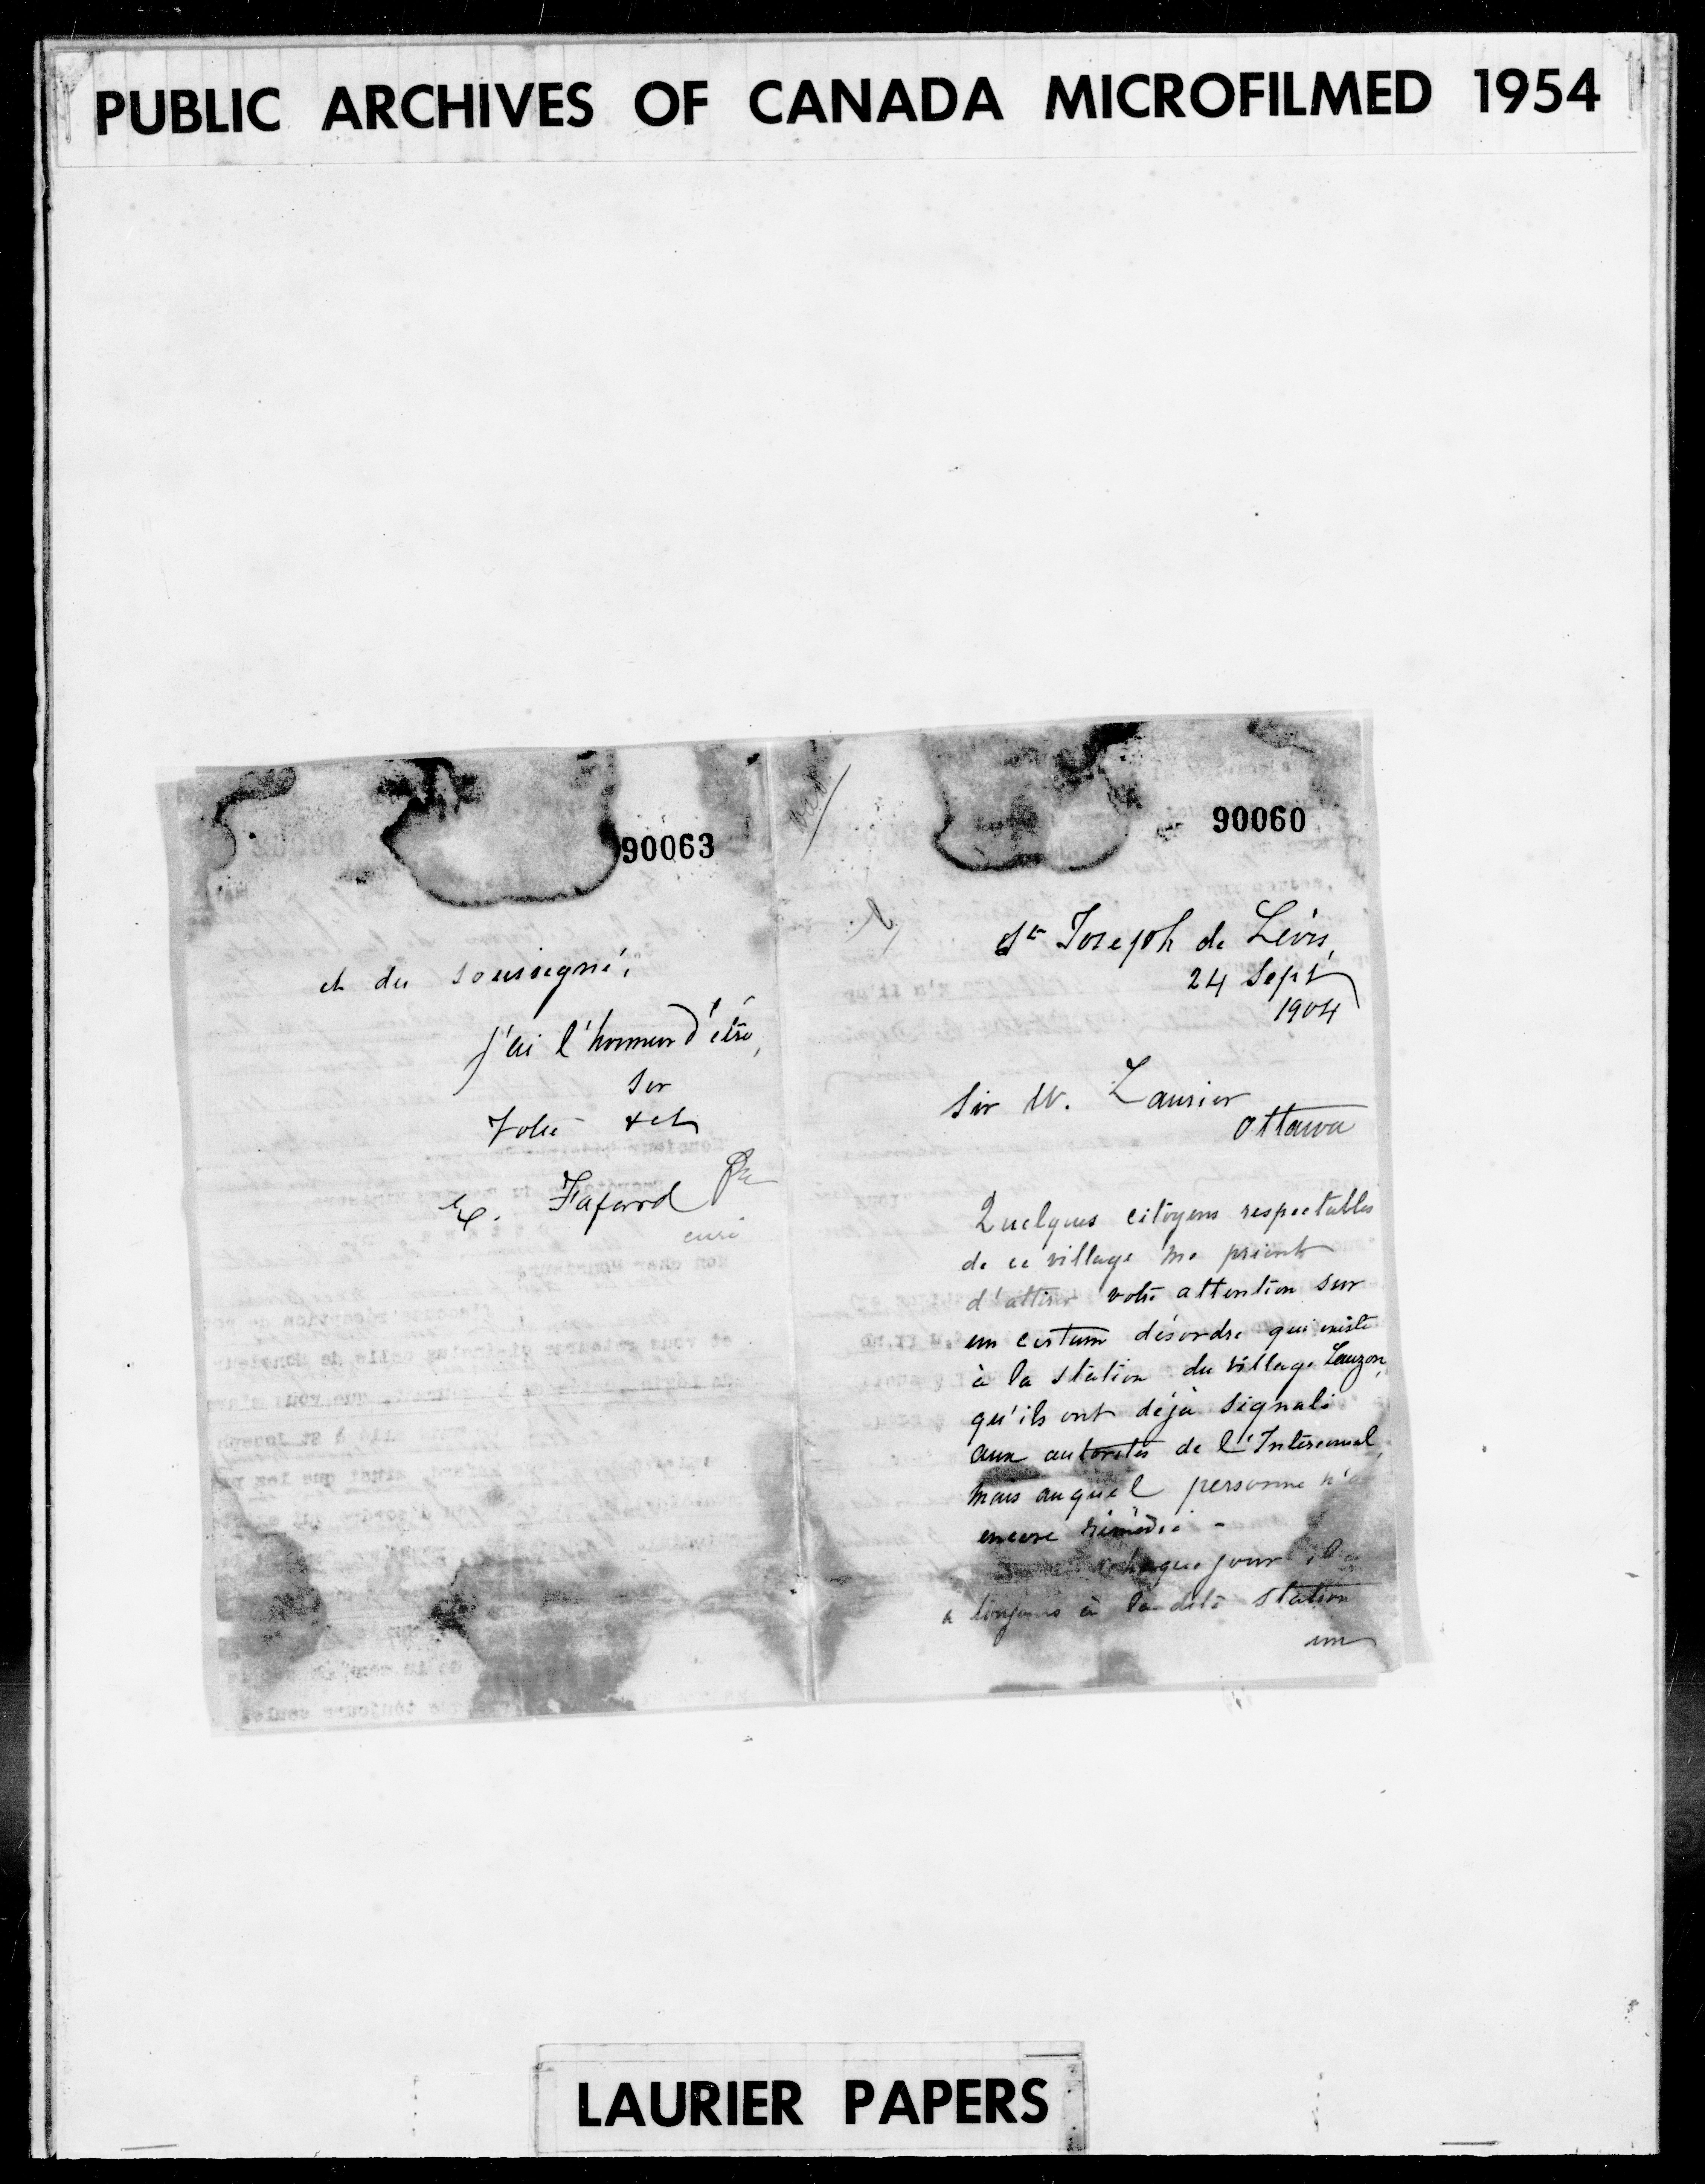 PUBLIC ARCHIVES OF CANADA MICROFILMED 1954
90063
et du soussigné,
J'ai l'honneur d'être,
Sir
Votre &ct
E. Fafard Ptre
curé
90060
St Joseph de Lévis,
24 Sept
1904
Sir W. Laurier
Ottawa
Quelques citoyens respectables
de ce village me prient
d'attirer votre attention sur
un certain désordre qui existe
à la station du village Lauzon,
qu'ils ont déjà signalé
aux autorités de l'Intercol,
mais auquel personne n'a
encore remédié -
Chaque jour il y
a toujours à la dite station
un
LAURIER PAPERS